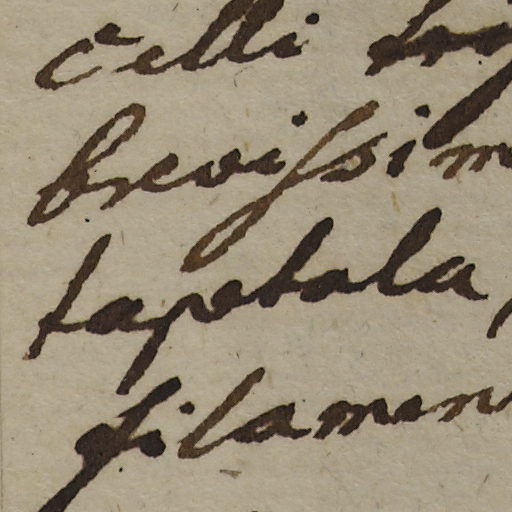 celli
brevissim
tapetala,
filamen